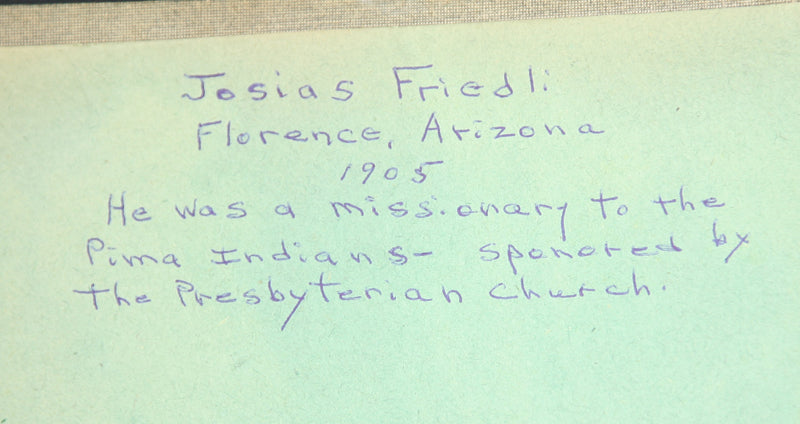 Josias Friedli
Florence, Arizona
1905
He was a missionary to the
Pima Indians- sponored by
the Presbyterian church.